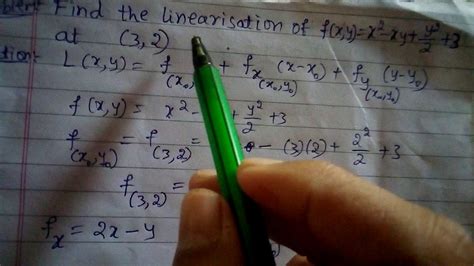 Find the linearisation of f(x,y)=x²-xy+y²/2+3
at (3,2)
L(x,y) = f(x₀, + fx(x₀,y₀) (x-x₀) + fy(x₀,y₀) (y-y₀)
f(x,y) = x² - + y²/2 + 3
f(x₀,y₀) = f(3,2) = - (3)(2) + 2²/2 + 3
f(3,2) =
fx = 2x-y